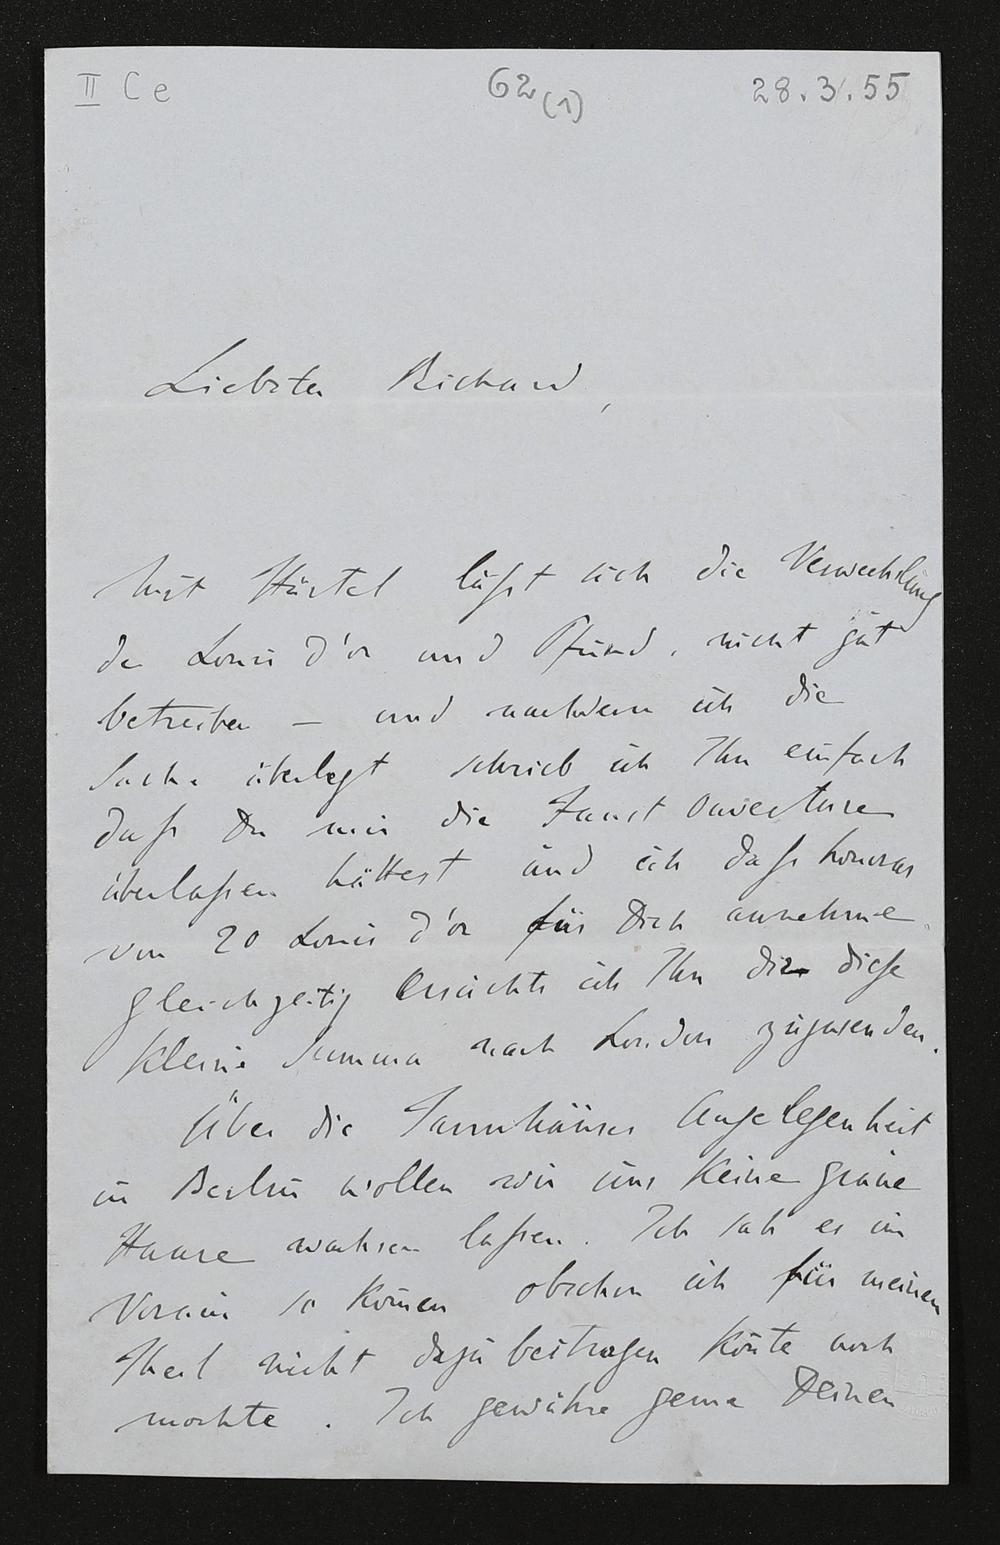 II Ce 62(1) 28.3.55
Liebster Richard,
Mit Härtel läßt sich die Verwechslung
der Louis d'or und Pfund, nicht gut
betreiben — und nachdem ich die
Sache überlegt schrieb ich Ihm einfach
daß Du mir die Faust Ouverture
überlaßen hättest und ich daß honorar
von 20 Louis d'or für Dich annehme.
gleichzeitig ersuchte ich Ihn dir dieße
kleine Summa nach London zuzusenden.
Über die Tannhäuser Angelegenheit
in Berlin wollen wir uns keine graue
Haare wachsen laßen. Ich sah es im
Voraus so kom̅en obschon ich für meinen
Theil nicht dazu beitragen kon̅te noch
mochte. Ich gewähre gerne Deinen